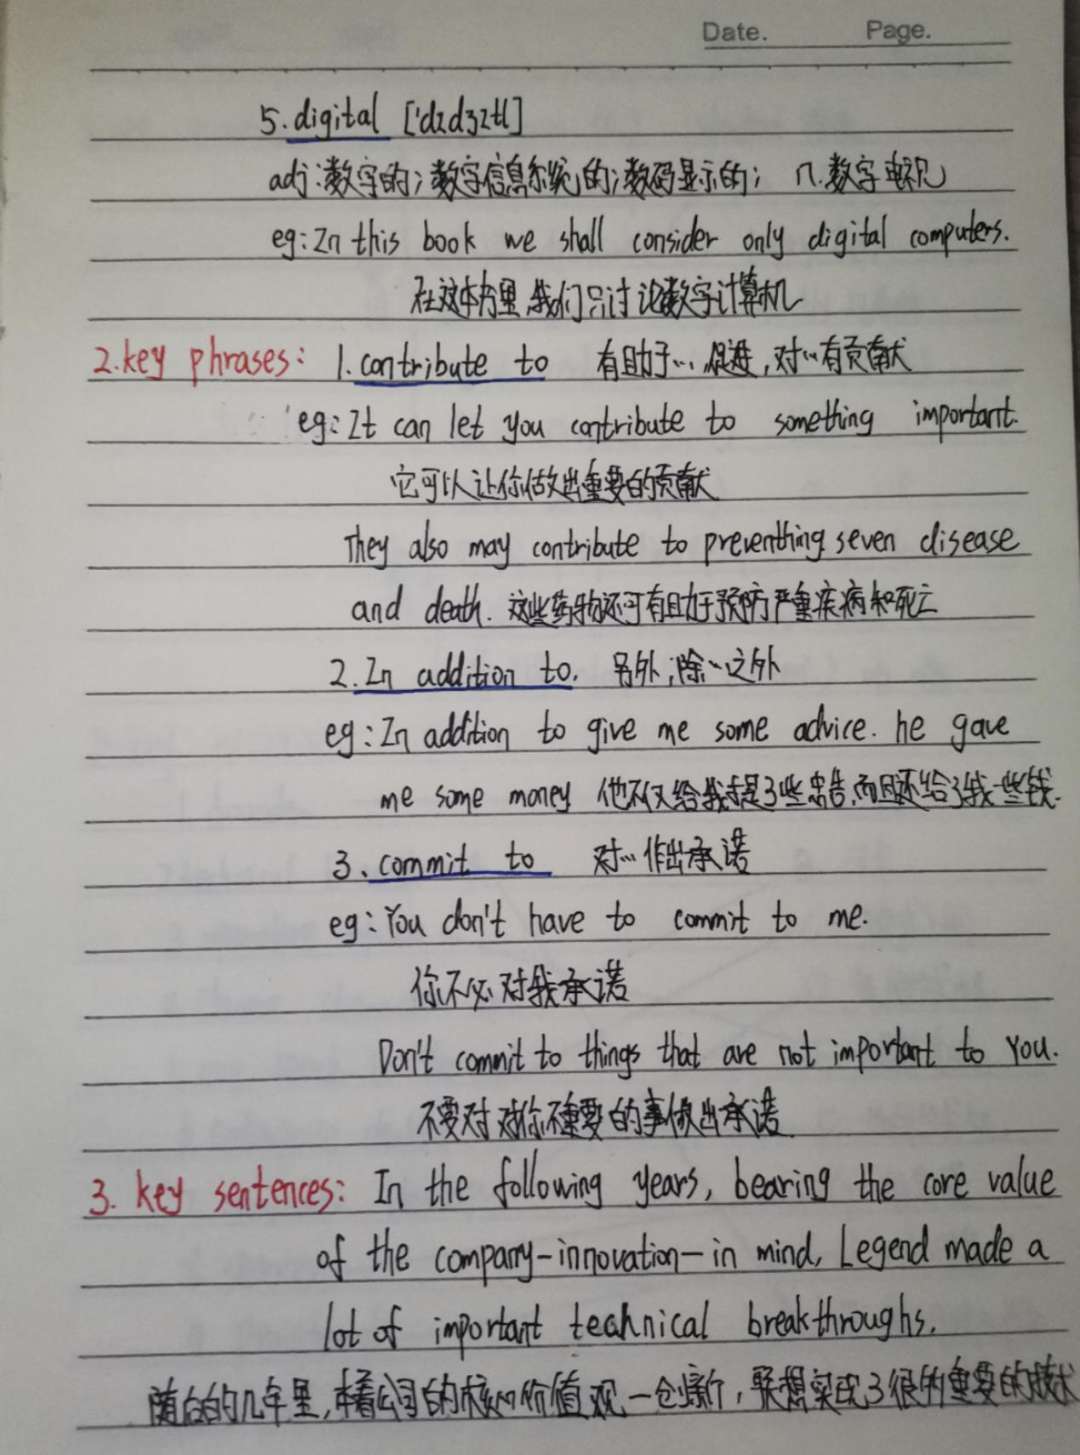 Date. Page.
5. digital ['dɪdʒɪtl]
adj:数字的;数字信息系统的;数码显示的; n.数字电视
eg: In this book we shall consider only digital computers.
在这本书里我们只讨论数字计算机
2. key phrases: 1. contribute to 有助于…促进,对…有贡献
eg: It can let you contribute to something important.
它可以让你做出重要的贡献
They also may contribute to preventhing seven disease
and death. 这些药物还可有助于预防严重疾病和死亡
2. In addition to. 另外;除…之外
eg: In addition to give me some advice. he gave
me some money 他不仅给我提了些忠告,而且还给了我一些钱.
3、commit to 对…作出承诺
eg: You don't have to commit to me.
你不必对我承诺
Don't commit to things that are not important to you.
不要对对你不重要的事做出承诺
3. key sentences: In the following years, bearing the core value
of the company-innovation-in mind, Legend made a
lot of important technical breakthroughs.
随后的几年里,本着公司的核心价值观一创新,联想实现了很多重要的技术